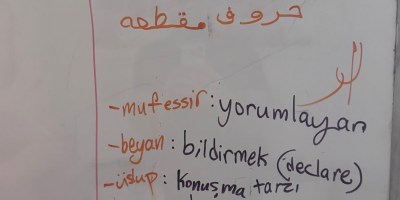 حروف مقطعه
الر
-mufessir: yorumlayan
-beyan: bildirmek (declare)
-üslup: Konuşma tarzı